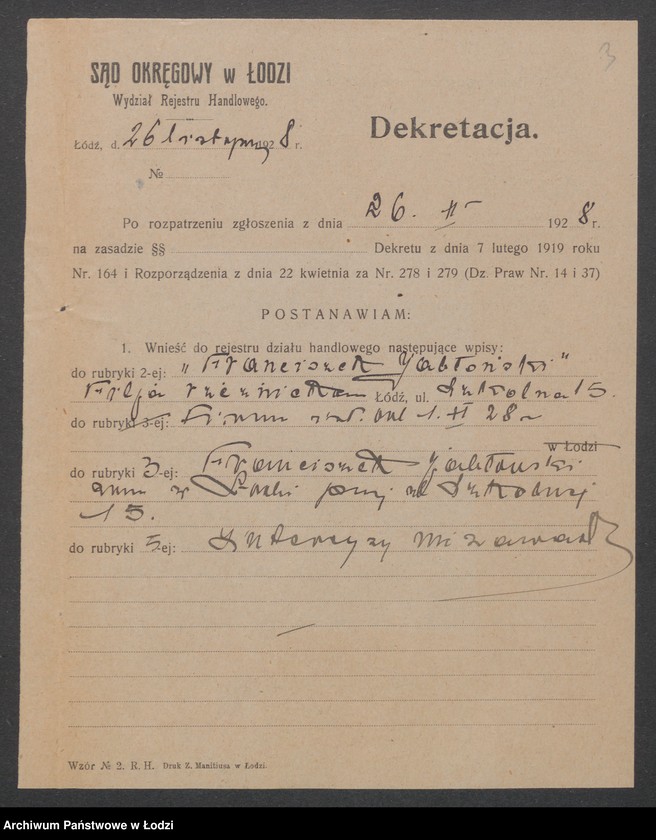 3
SĄD OKRĘGOWY w ŁODZI
Wydział Rejestru Handlowego.
Dekretacja.
Łódź, d. 26 listopada 1928 r.
№
Po rozpatrzeniu zgłoszenia z dnia 26. XI 1928 r.
na zasadzie §§ Dekretu z dnia 7 lutego 1919 roku
Nr. 164 i Rozporządzenia z dnia 22 kwietnia za Nr. 278 i 279 (Dz. Praw Nr. 14 i 37)
POSTANAWIAM:
1. Wnieść do rejestru działu handlowego następujące wpisy:
do rubryki 2-ej: „Franciszek Jabłoński"
Filja Łódź, ul. Szkolna 15.
do rubryki 3-ej: Firma istn. od 1. XI 28 r
w Łodzi
do rubryki 3-ej: Franciszek Jabłoński
zam w Łodzi przy ul Szkolnej
15.
do rubryki 5-ej: Intercyzy nie zawarł
Wzór № 2. R. H. Druk Z. Manitiusa w Łodzi.
Archiwum Państwowe w Łodzi